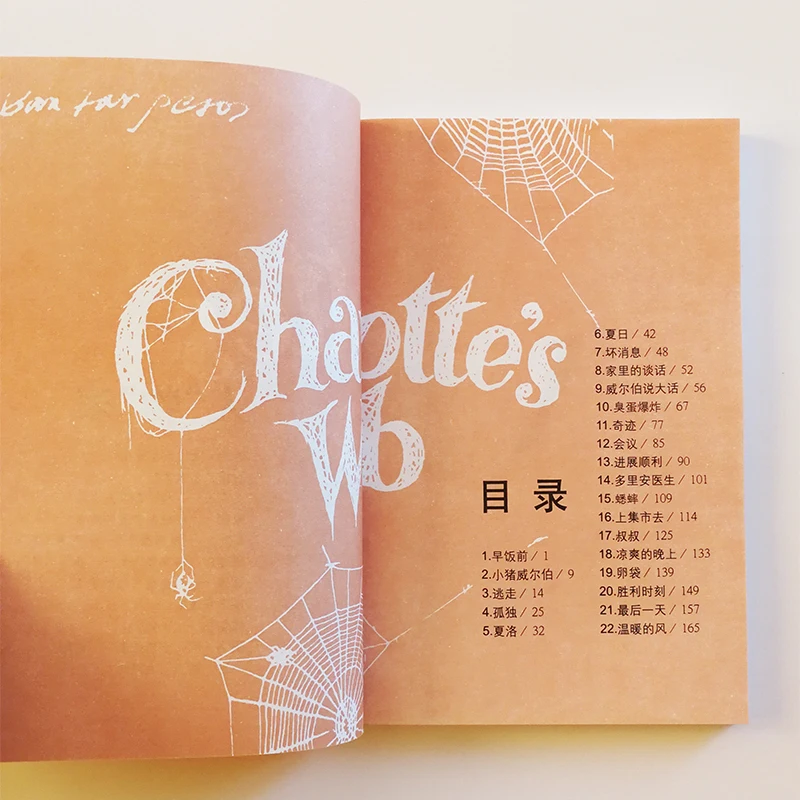 Chaotte's
Wb
目录
1.早饭前 / 1
2.小猪威尔伯 / 9
3.逃走 / 14
4.孤独 / 25
5.夏洛 / 32
6.夏日 / 42
7.坏消息 / 48
8.家里的谈话 / 52
9.威尔伯说大话 / 56
10.臭蛋爆炸 / 67
11.奇迹 / 77
12.会议 / 85
13.进展顺利 / 90
14.多里安医生 / 101
15.蟋蟀 / 109
16.上集市去 / 114
17.叔叔 / 125
18.凉爽的晚上 / 133
19.卵袋 / 139
20.胜利时刻 / 149
21.最后一天 / 157
22.温暖的风 / 165